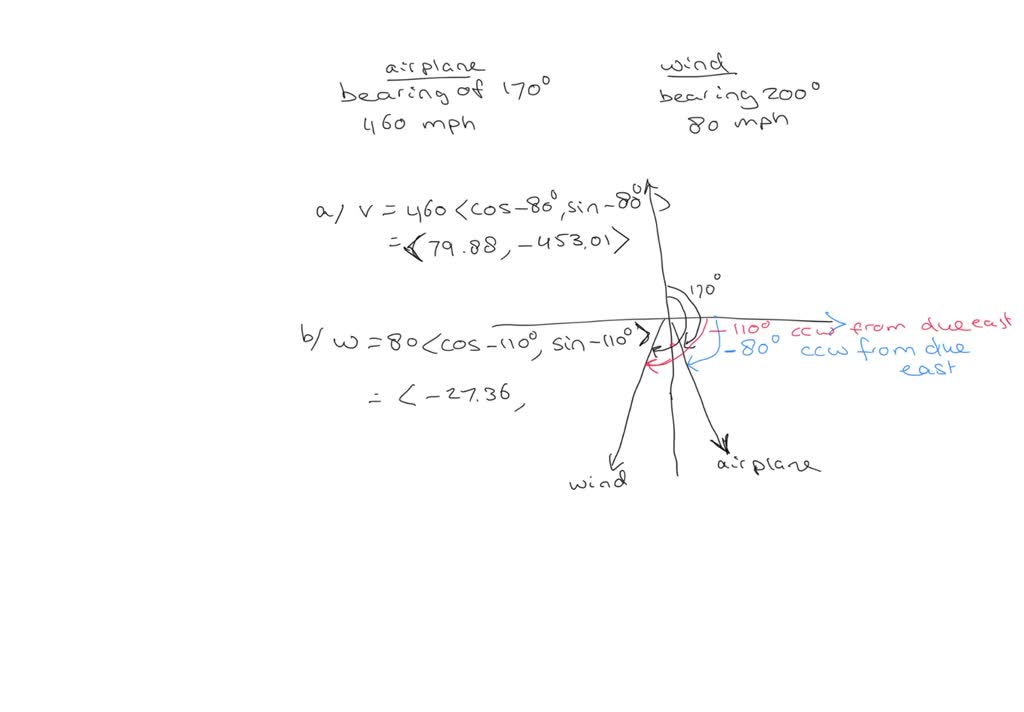 airplane
bearing of 170°
460 mph
wind
bearing 200°
80 mph
a/ v = 460 <cos-80°, sin-80°>
= <79.88, -453.01>
170°
b/ w = 80 <cos-110°, sin-110°>
= < -27.36,
-110° ccw from due east
-80° ccw from due
east
wind
airplane